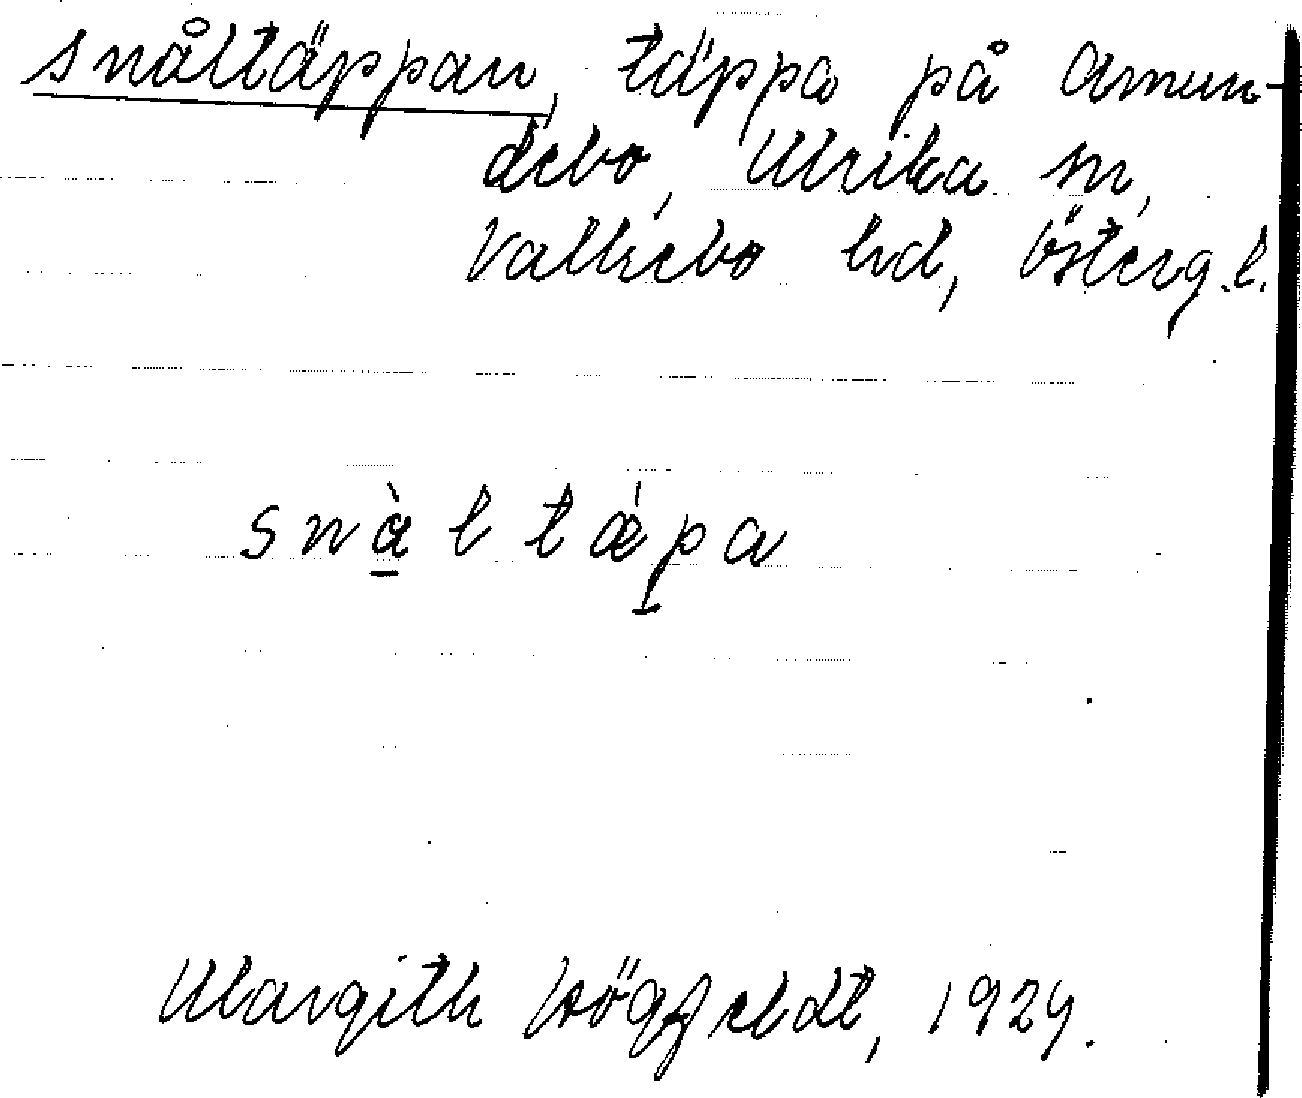 snåltäppan, täppa på Amun-
debo, Ulrika sn,
Valkebo hd, Österg.l.
snàltǽpa
Margith Högfeldt, 1929.